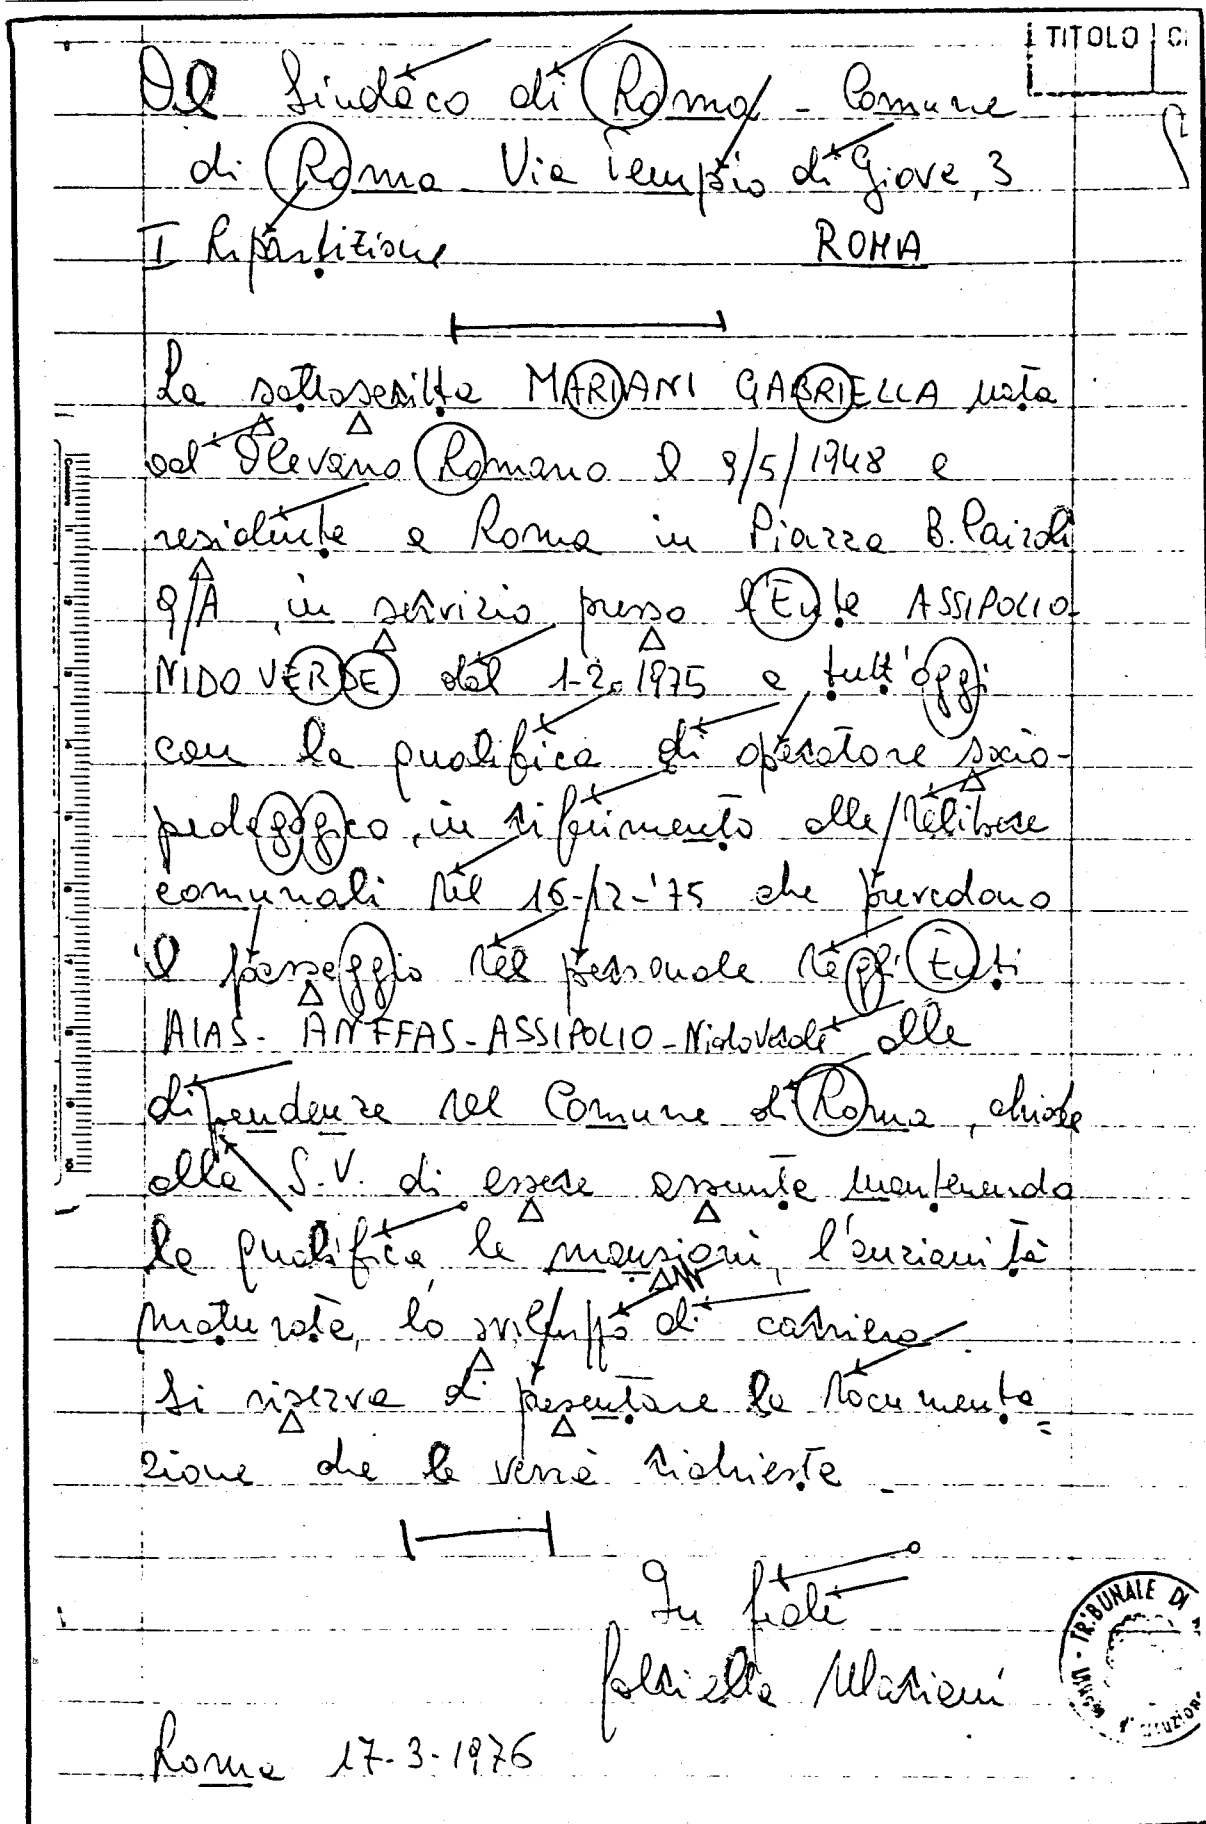 TITOLO
Al Sindaco di Roma - Comune
di Roma Via Tempio di Giove, 3
I Ripartizione ROMA
La sottoscritta MARIANI GABRIELLA nata
ad Olevano Romano il 9/5/1948 e
residente a Roma in Piazza B. Cairoli
9/A, in servizio presso l'Ente ASSIPOLIO-
NIDO VERDE dal 1-2-1975 a tutt'oggi
con la qualifica di operatore socio-
pedagogico, in riferimento alle delibere
comunali del 16-12-'75 che prevedono
il passaggio del personale degli Enti
AIAS - ANFFAS - ASSIPOLIO - Nido Verde alle
dipendenze del Comune di Roma, chiede
alla S.V. di essere assunta mantenendo
la qualifica, le mansioni, l'anzianità
maturata, lo sviluppo di carriera.
Si riserva di presentare la documenta=
zione che le verrà richiesta.
In fede
Gabriella Mariani
TRIBUNALE DI
Roma 17-3-1976